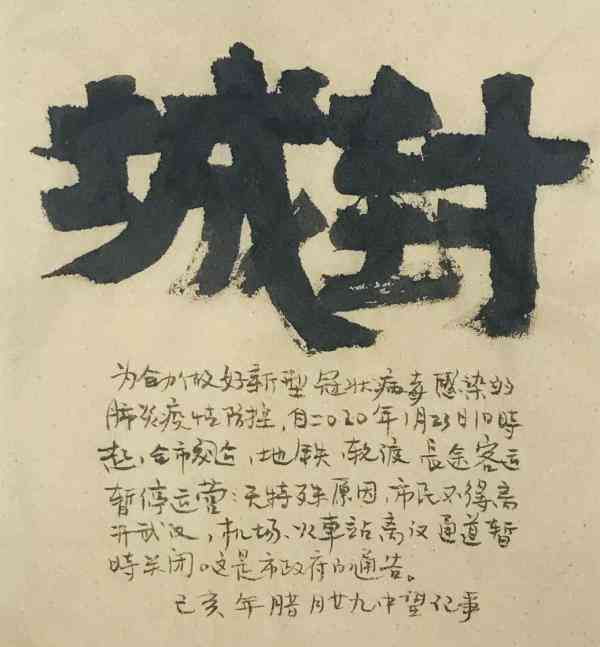 封城
为全力做好新型冠状病毒感染的
肺炎疫情防控,自二020年1月23日10時
起,全市公交,地铁,轮渡長途客运
暫停运营:无特殊原因,市民不得离
开武汉,机场、火車站离汉通道暫
時关闭。这是市政府的通告。
己亥年腊月廿九中望记事